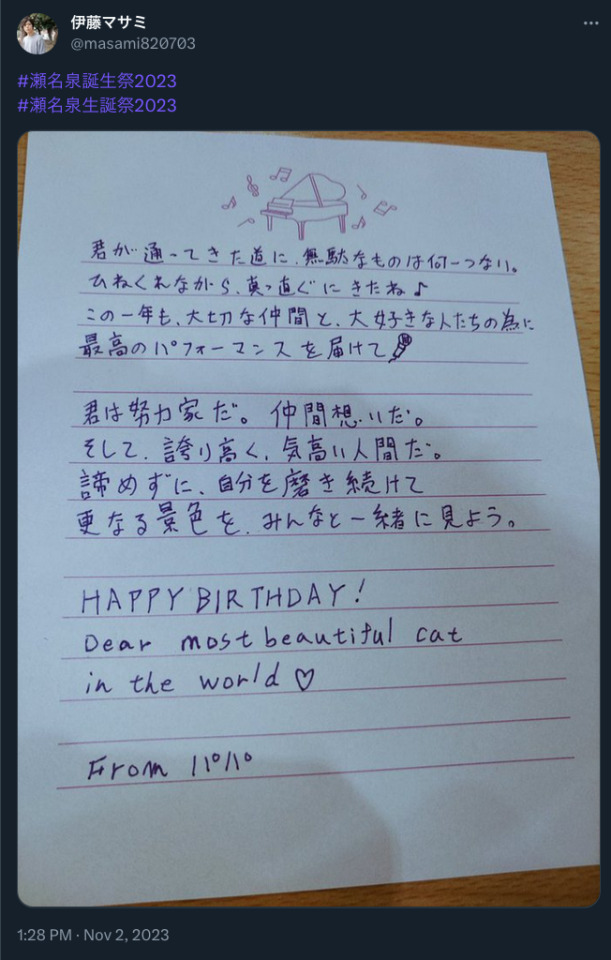 伊藤マサミ
@masami820703
#瀬名泉誕生祭2023
#瀬名泉生誕祭2023
君が通ってきた道に、無駄なものは何一つない。
ひねくれながら、真っ直ぐにきたね♪
この一年も、大切な仲間と、大好きな人たちの為に
最高のパフォーマンスを届けて🎤
君は努力家だ。仲間想いだ。
そして、誇り高く、気高い人間だ。
諦めずに、自分を磨き続けて
更なる景色を、みんなと一緒に見よう。
HAPPY BIRTHDAY!
Dear most beautiful cat
in the world ♡
From パパ
1:28 PM · Nov 2, 2023